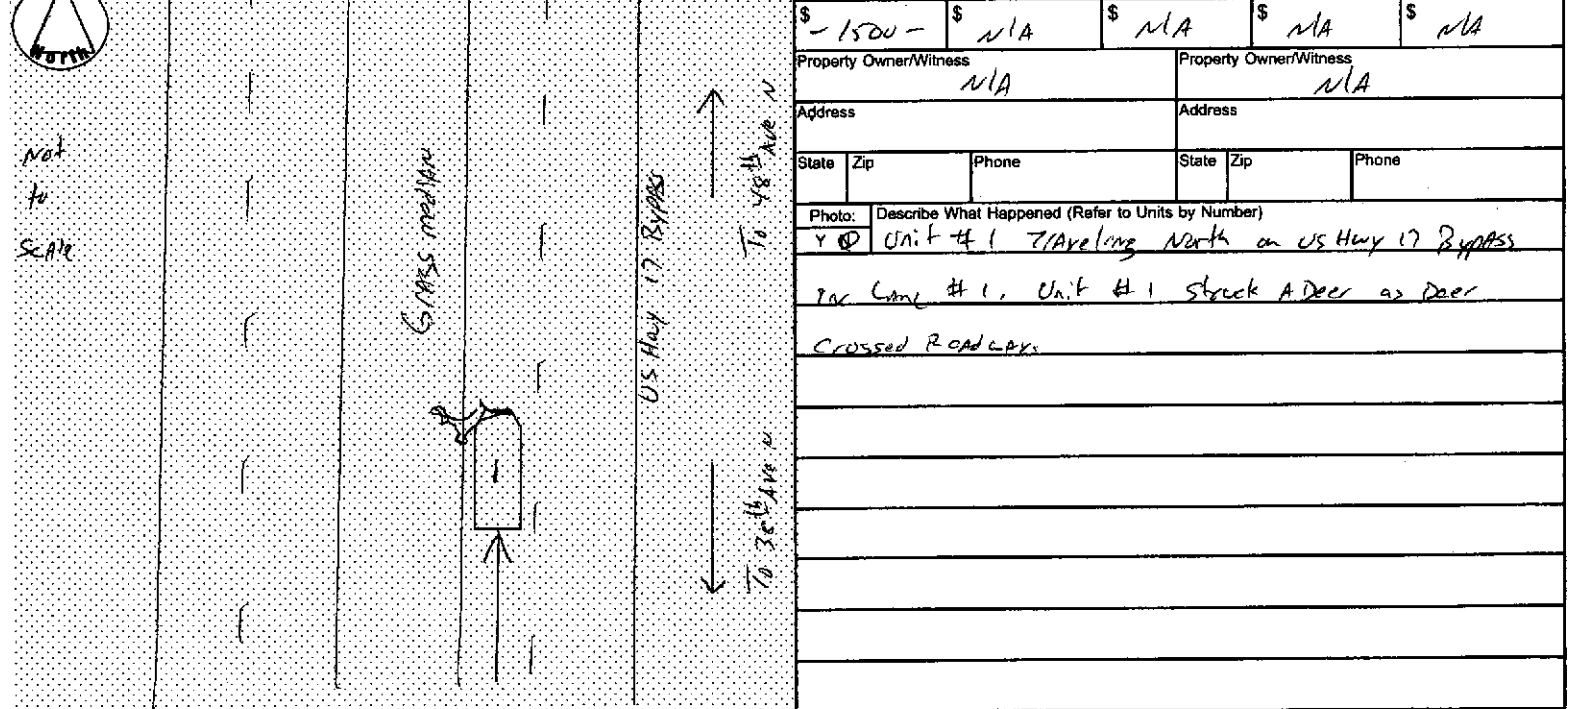 North
Not
to
Scale
Grass median
US Hwy 17 Bypass
To 48th Ave N
To 38th Ave N
$ -1500- $ N/A $ N/A $ N/A $ N/A
Property Owner/Witness Property Owner/Witness
N/A N/A
Address Address
State Zip Phone State Zip Phone
Photo: Describe What Happened (Refer to Units by Number)
Y N Unit #1 Traveling North on US Hwy 17 Bypass
in Lane #1. Unit #1 Struck A Deer as Deer
Crossed Roadway.
1